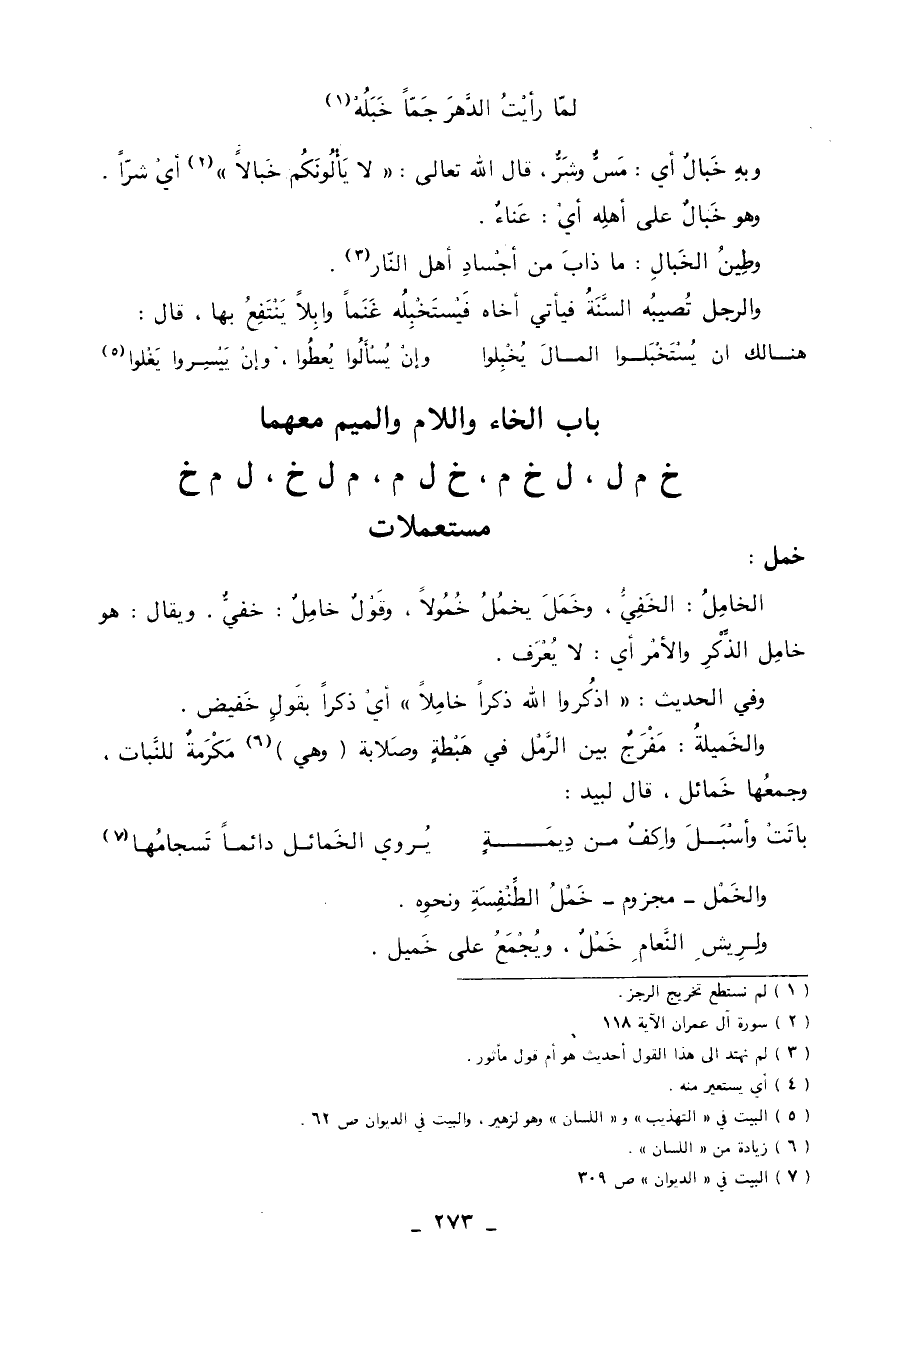 لمّا رأيْتُ الدَّهرَ جَمّاً خَبَلُهْ(١)
وبهِ خَبالٌ أي : مَسٌّ وشَرٌّ ، قال الله تعالى : « لا يَأْلُونَكُم خَبالاً »(٢) أيْ شرّاً .
وهو خَبالٌ على أهلِه أيْ : عَناءٌ .
وطِينُ الخَبالِ : ما ذابَ من أجْسادِ أهل النّار(٣) .
والرجل تُصيبُه السَّنَةُ فيأتي أخاه فَيْستَخْبِلُه غَنَماً وابِلاً يَنْتَفِعُ بها ، قال :
هنـالك ان يُسْتَخْبَلـوا المـالَ يُخْبِلوا وإنْ يُسْأَلُوا يُعطُوا ، وإنْ يَيْسِـروا يَغْلوا(٥)
باب الخاء واللام والميم معهما
خ م ل ، ل خ م ، خ ل م ، م ل خ ، ل م خ
مستعملات
خمل :
الخامِلُ : الخَفِيُّ ، وخَمَلَ يخمُلُ خُمُولاً ، وقَوْلٌ خامِلٌ : خفيٌّ . ويقال : هو
خامِل الذِّكْرِ والأمْر أي : لا يُعْرَف .
وفي الحديث : « اذكُروا الله ذكراً خامِلاً » أيْ ذكراً بقَولٍ خَفيض .
والخَميلةُ : مَفْرَجٌ بين الرَّمْل في هَبْطةٍ وصَلابة ( وهي )(٦) مَكْرَمةٌ للنَّبات ،
وجمعُها خَمائل ، قال لبيد :
باتَتْ وأسْبَـلَ واكِفٌ مـن دِيمَـــةٍ يُـروي الخَمائـل دائمـاً تَسجامُهـا(٧)
والخَمْل ـ مجزوم ـ خَمْلُ الطِّنْفِسَةِ ونحوِه .
ولِـرِيشِ النَّعامِ خَمْلٌ ، ويُجْمَعُ على خَميل .
( ١ ) لم نستطع تخريج الرجز .
( ٢ ) سورة آل عمران الآية ١١٨
( ٣ ) لم نهتد الى هذا القول أحديث هو أم قول مأثور .
( ٤ ) أي يستعير منه .
( ٥ ) البيت في « التهذيب » و « اللسان » وهو لزهير ، والبيت في الديوان ص ٦٢ .
( ٦ ) زيادة من « اللسان » .
( ٧ ) البيت في « الديوان » ص ٣٠٩
ـ ٢٧٣ ـ